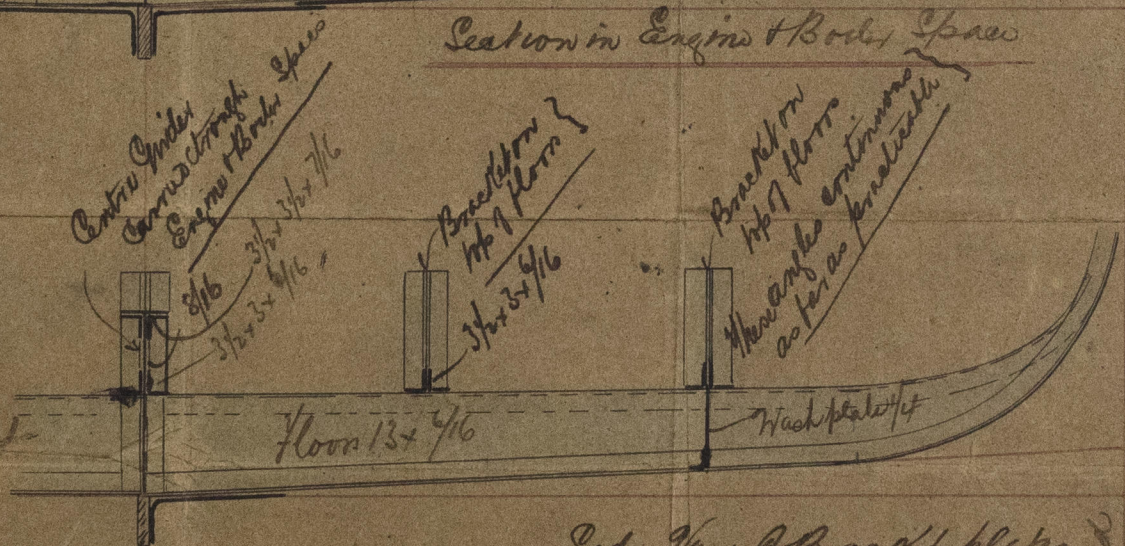 Section in Engine & Boiler Space
Centre Girder
carried through
Engine & Boiler Space
3 1/2 x 3 1/2 x 7/16
8/16
3 1/2 x 3 x 6/16
Bracket on
top of floors
3 1/2 x 3 x 6/16
Bracket on
top of floors
These angles continuous
as far as practicable
Floors 13 x 6/16
Wash plate